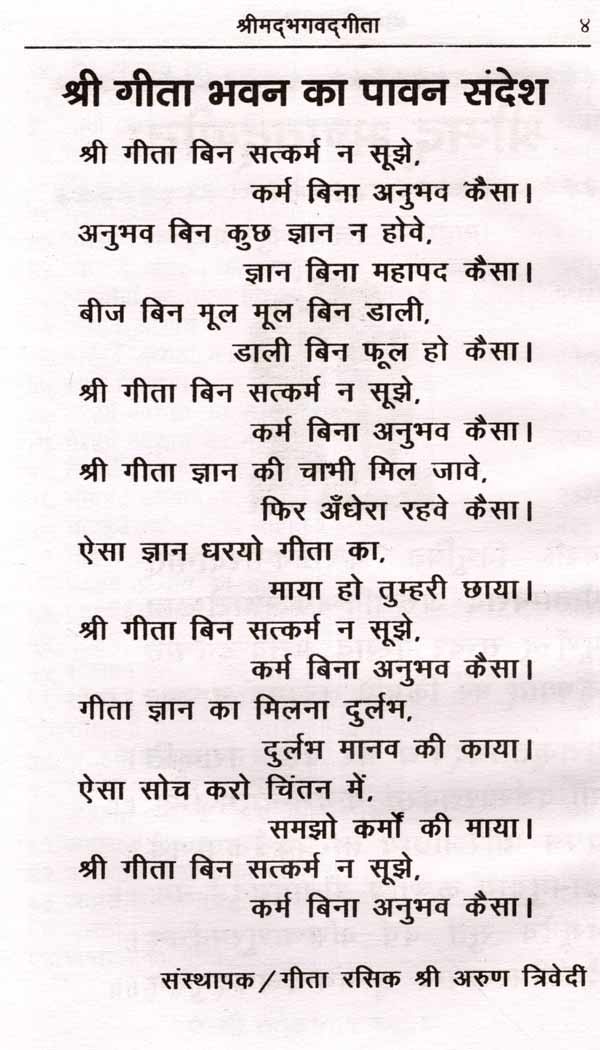 श्रीमद्भगवद्गीता ४
श्री गीता भवन का पावन संदेश
श्री गीता बिन सत्कर्म न सूझे,
कर्म बिना अनुभव कैसा।
अनुभव बिन कुछ ज्ञान न होवे,
ज्ञान बिना महापद कैसा।
बीज बिन मूल मूल बिन डाली,
डाली बिन फूल हो कैसा।
श्री गीता बिन सत्कर्म न सूझे,
कर्म बिना अनुभव कैसा।
श्री गीता ज्ञान की चाभी मिल जावे,
फिर अँधेरा रहवे कैसा।
ऐसा ज्ञान धरयो गीता का,
माया हो तुम्हरी छाया।
श्री गीता बिन सत्कर्म न सूझे,
कर्म बिना अनुभव कैसा।
गीता ज्ञान का मिलना दुर्लभ,
दुर्लभ मानव की काया।
ऐसा सोच करो चिंतन में,
समझो कर्मों की माया।
श्री गीता बिन सत्कर्म न सूझे,
कर्म बिना अनुभव कैसा।
संस्थापक/गीता रसिक श्री अरुण त्रिवेदी